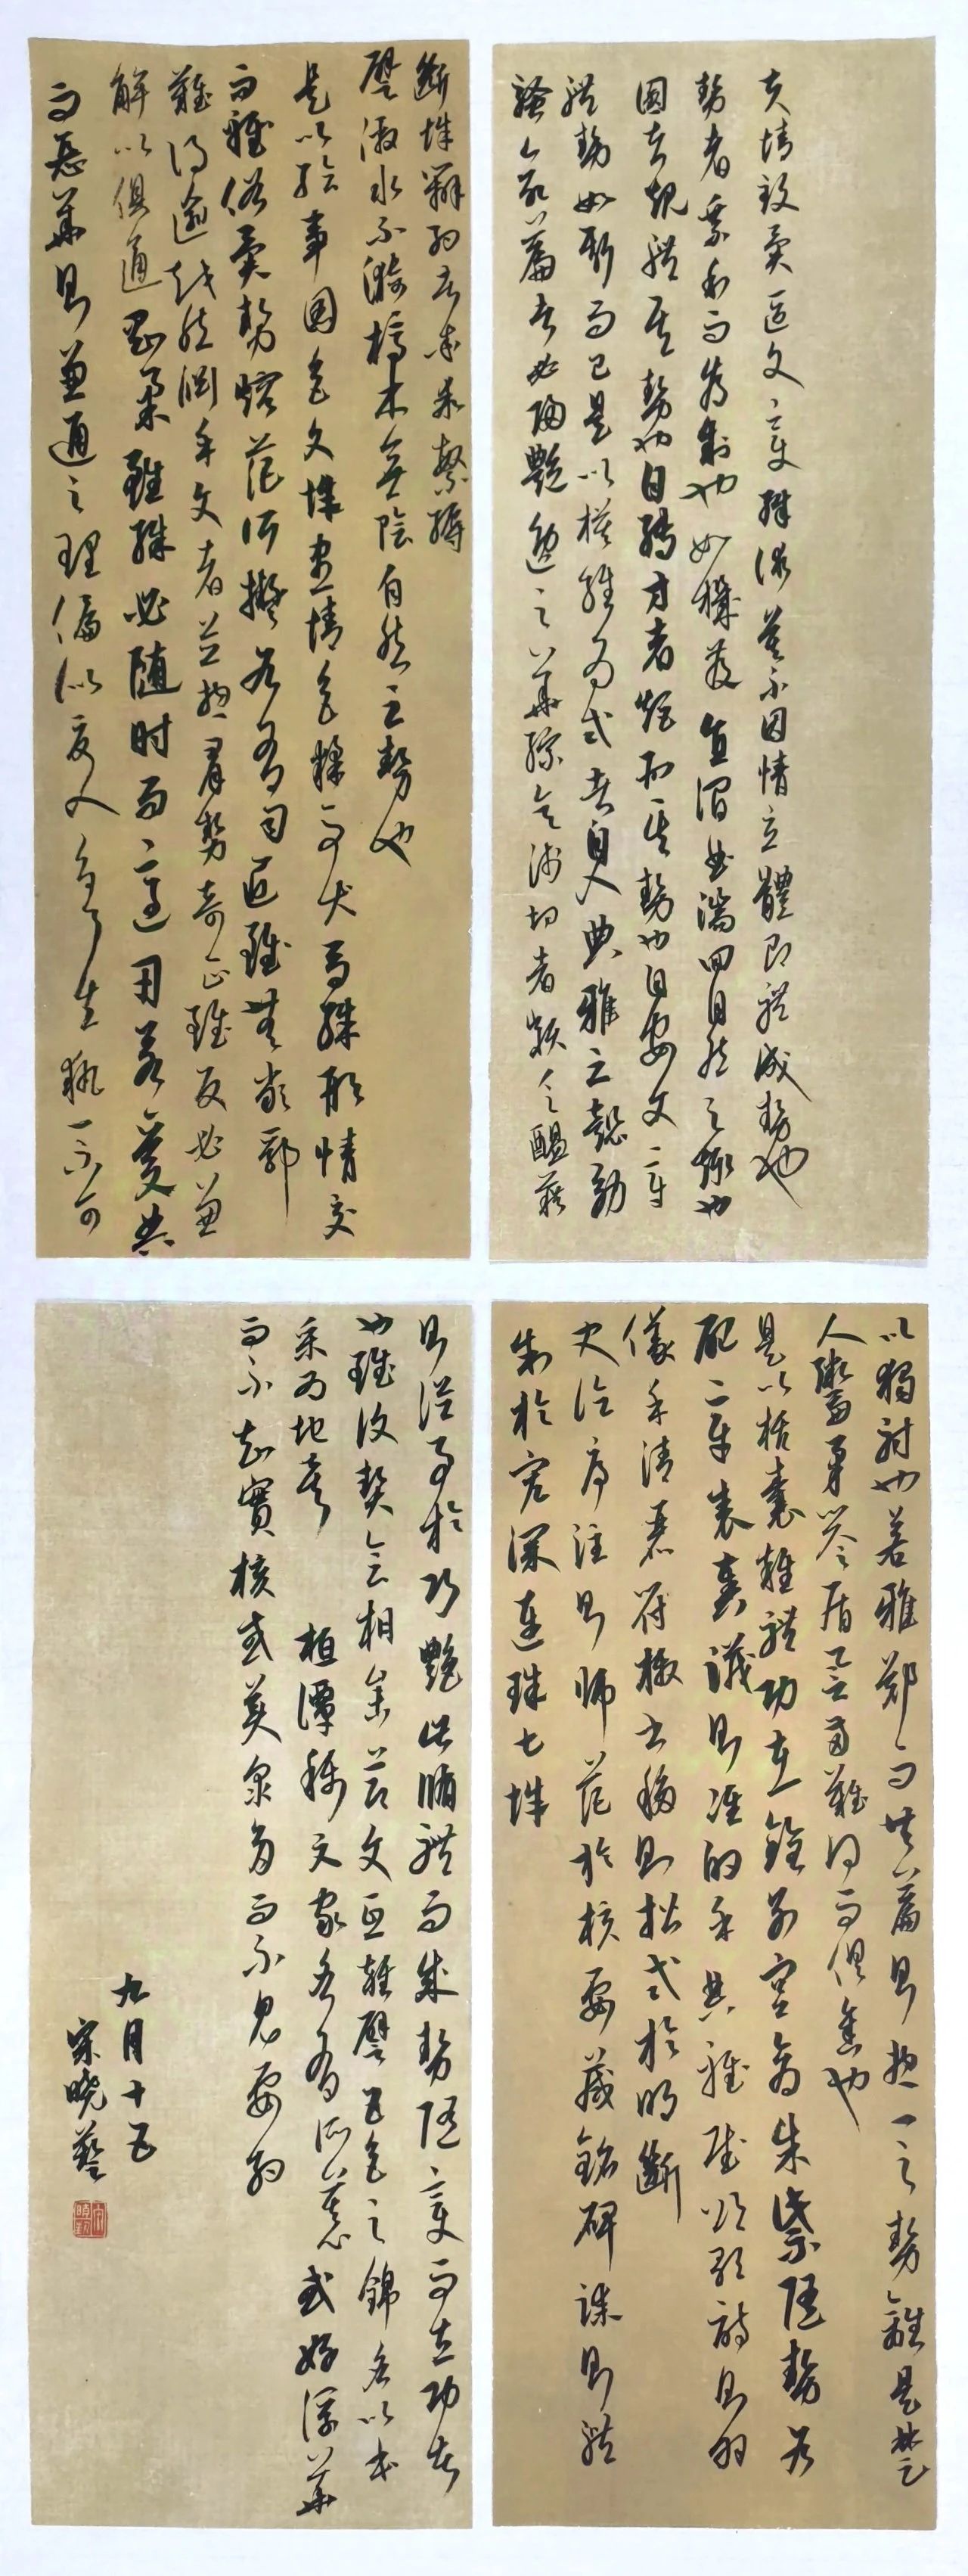 夫情致異區文變殊術莫不因情立體即體成勢也
勢者乘利而為制也如機發直澗曲湍回自然之趣也
圓者規體其勢也自轉方者矩形其勢也自安文章
體勢如斯而已是以模經為式者自入典雅之懿效
騷命篇者必歸艷逸之華綜意淺切者類乏醞藉
斷辭辨約者率乖繁縟
譬激水不漪槁木無陰自然之勢也
是以繪事圖色文辭盡情色糅而犬馬殊形情交
而雅俗異勢鎔范所擬各有司匠雖無嚴郛
難得逾越然淵乎文者並總群勢奇正雖反必兼
解以俱通剛柔雖殊必隨時而適用若愛典
而惡華則兼通之理偏似夏人爭弓矢執一不可
以獨射也若雅鄭而共篇則總一之勢離是楚
人鬻矛譽盾譽兩難得而俱售也
是以括囊雜體功在銓別宮商朱紫隨勢各
配章表奏議則准的乎典雅賦頌歌詩則羽
儀乎清麗符檄書移則楷式於明斷
史論序注則師范於核要箴銘碑誄則體
制於宏深連珠七辭
則從事於巧艷此循體而成勢隨變而立功者
也雖復契會相參節文互雜譬五色之錦各以本
采為地矣 桓譚稱文家各有所慕或好浮華
而不知實核或美眾多而不見要約
九月十五
宋曉藝